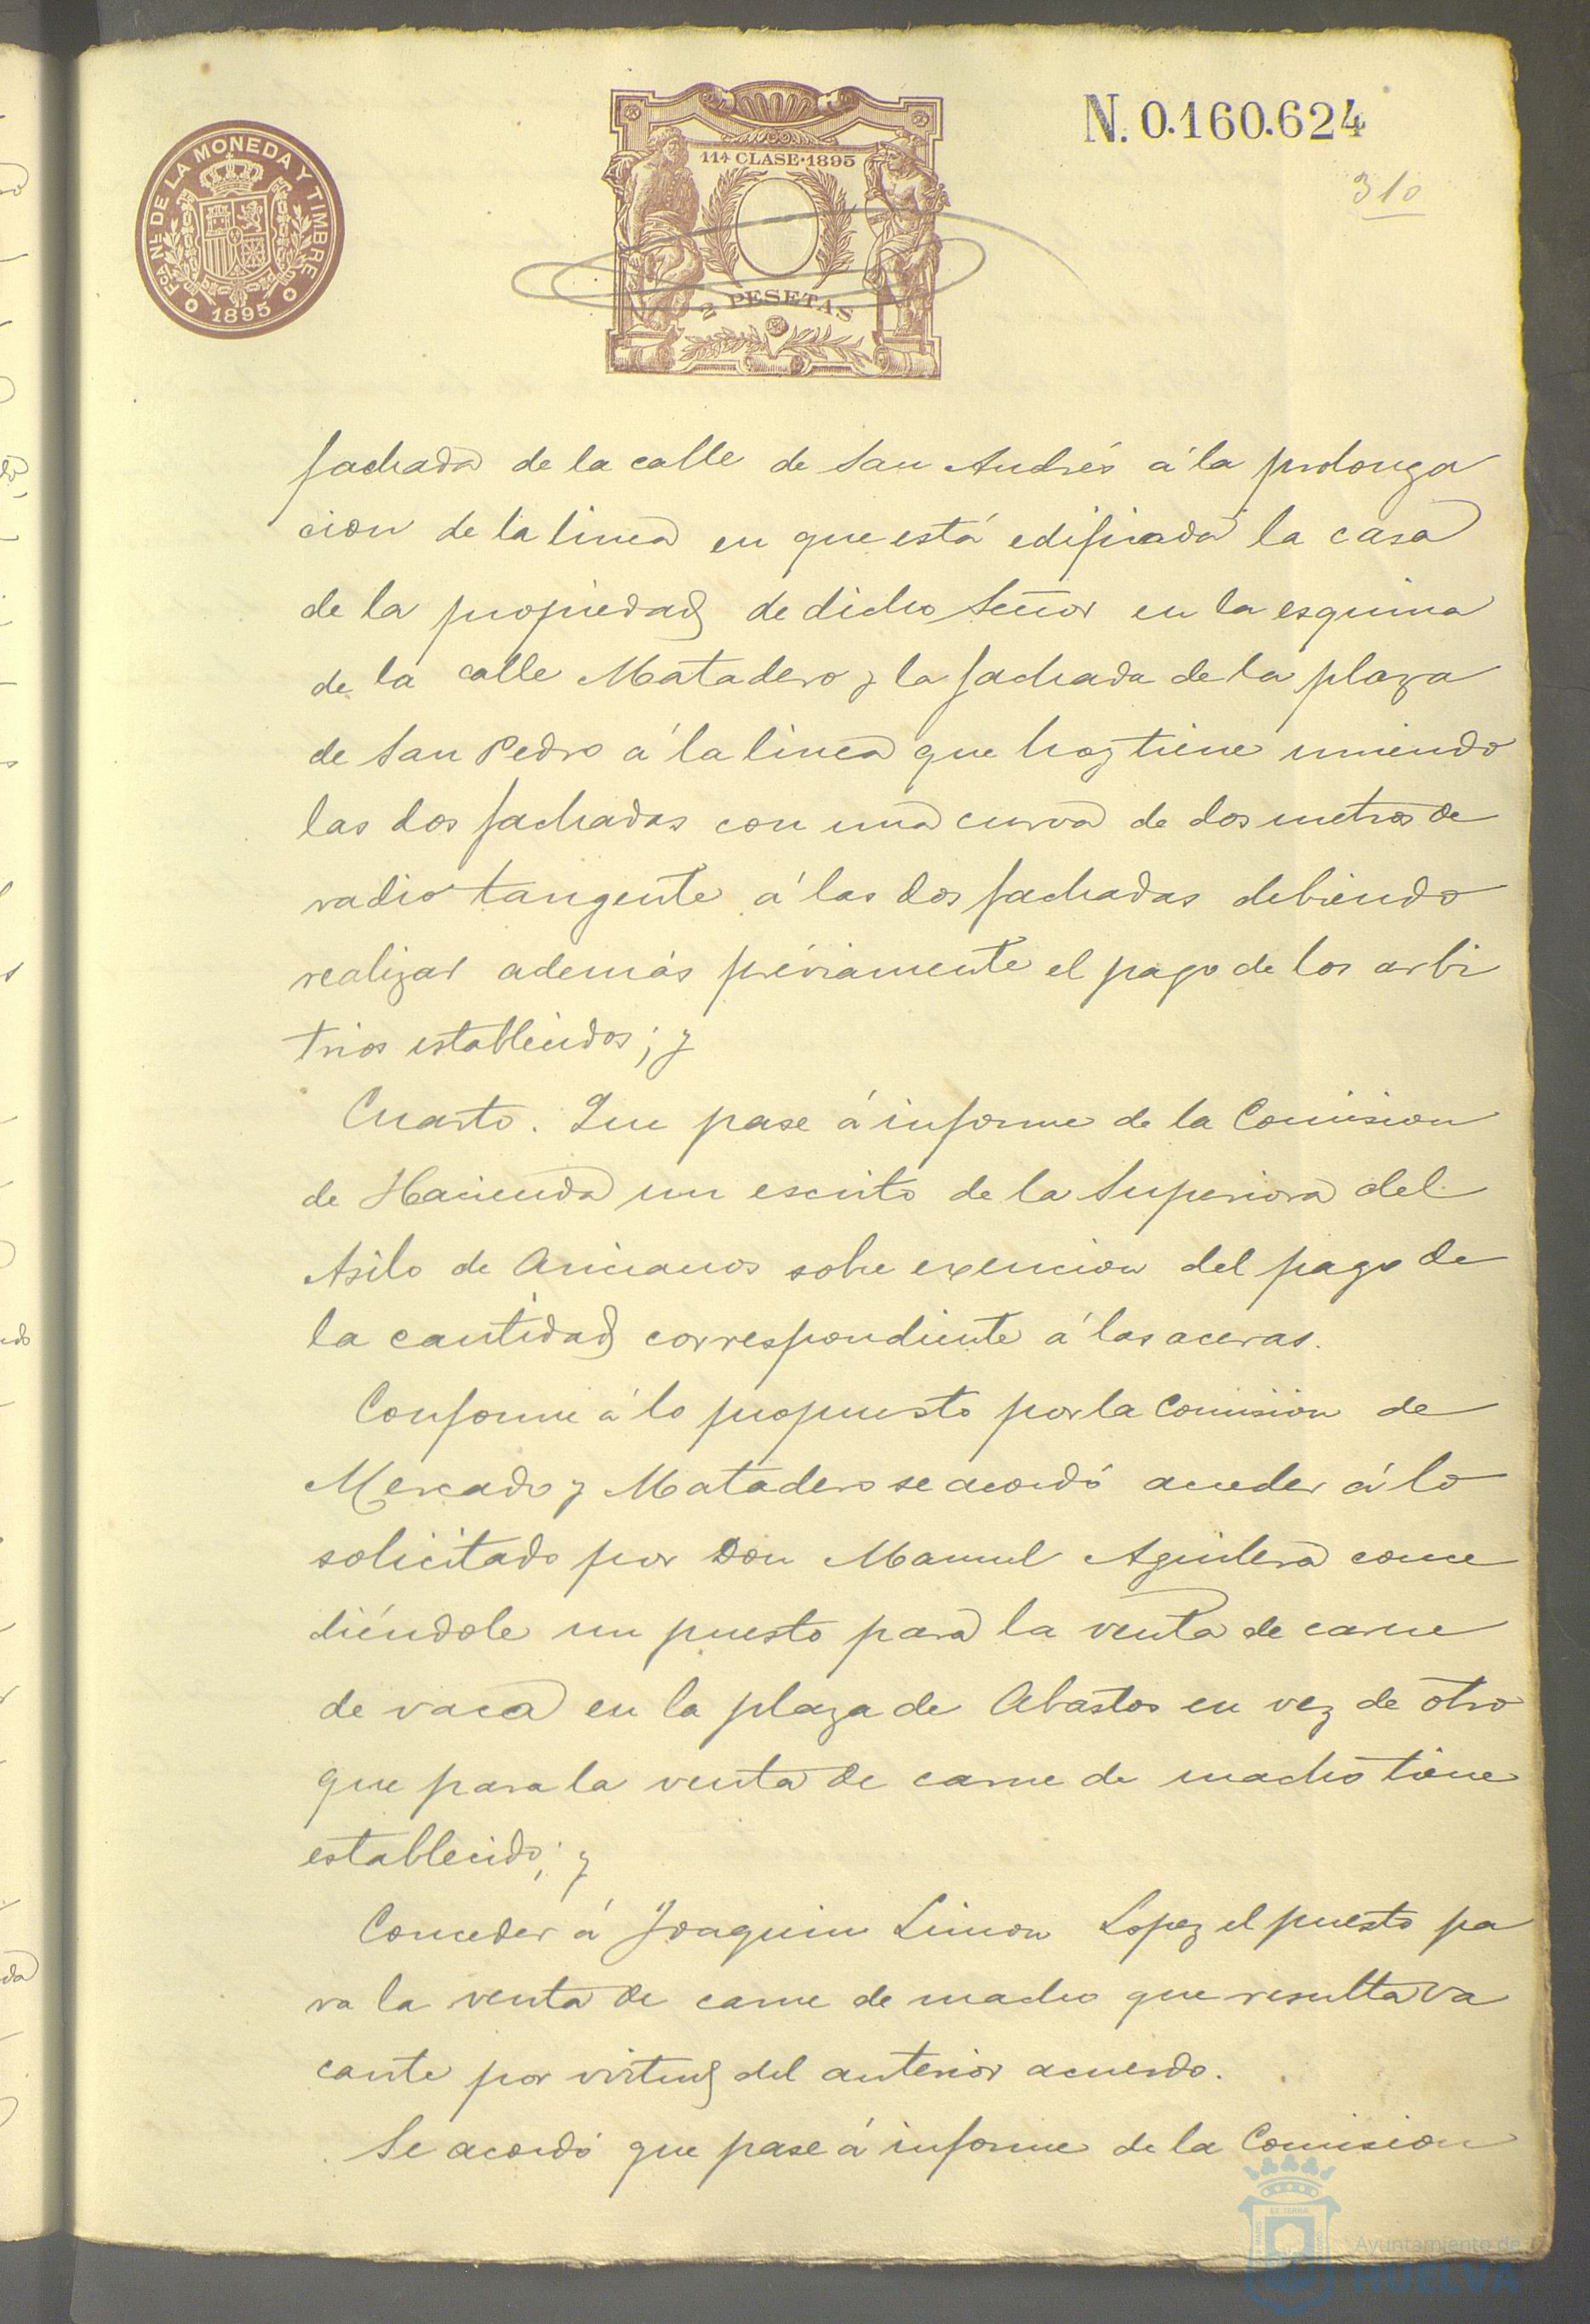 Fca. Nl. DE LA MONEDA Y TIMBRE
1895
11ª CLASE·1895
2 PESETAS
N. 0.160.624
310
fachada de la calle de San Andrés á la prolonga
cion de la linea en que está edificada la casa
de la propiedad de dicho Señor en la esquina
de la calle Matadero y la fachada de la plaza
de San Pedro á la linea que hoy tiene uniendo
las dos fachadas con una curva de dos metros de
radio tangente á las dos fachadas debiendo
realizar además préviamente el pago de los arbi
trios establecidos; y
Cuarto. Que pase á informe de la Comision
de Hacienda un escrito de la Superiora del
Asilo de Ancianos sobre exencion del pago de
la cantidad correspondiente á las aceras.
Conforme á lo propuesto por la Comision de
Mercado y Matadero se acordó acceder á lo
solicitado por Don Manuel Aguilera conce
diéndole un puesto para la venta de carne
de vaca en la plaza de Abastos en vez de otro
que para la venta de carne de macho tiene
establecido; y
Conceder á Joaquin Limon Lopez el puesto pa
ra la venta de carne de macho que resulta va
cante por virtud del anterior acuerdo.
Se acordó que pase á informe de la Comision
Ayuntamiento de
HUELVA